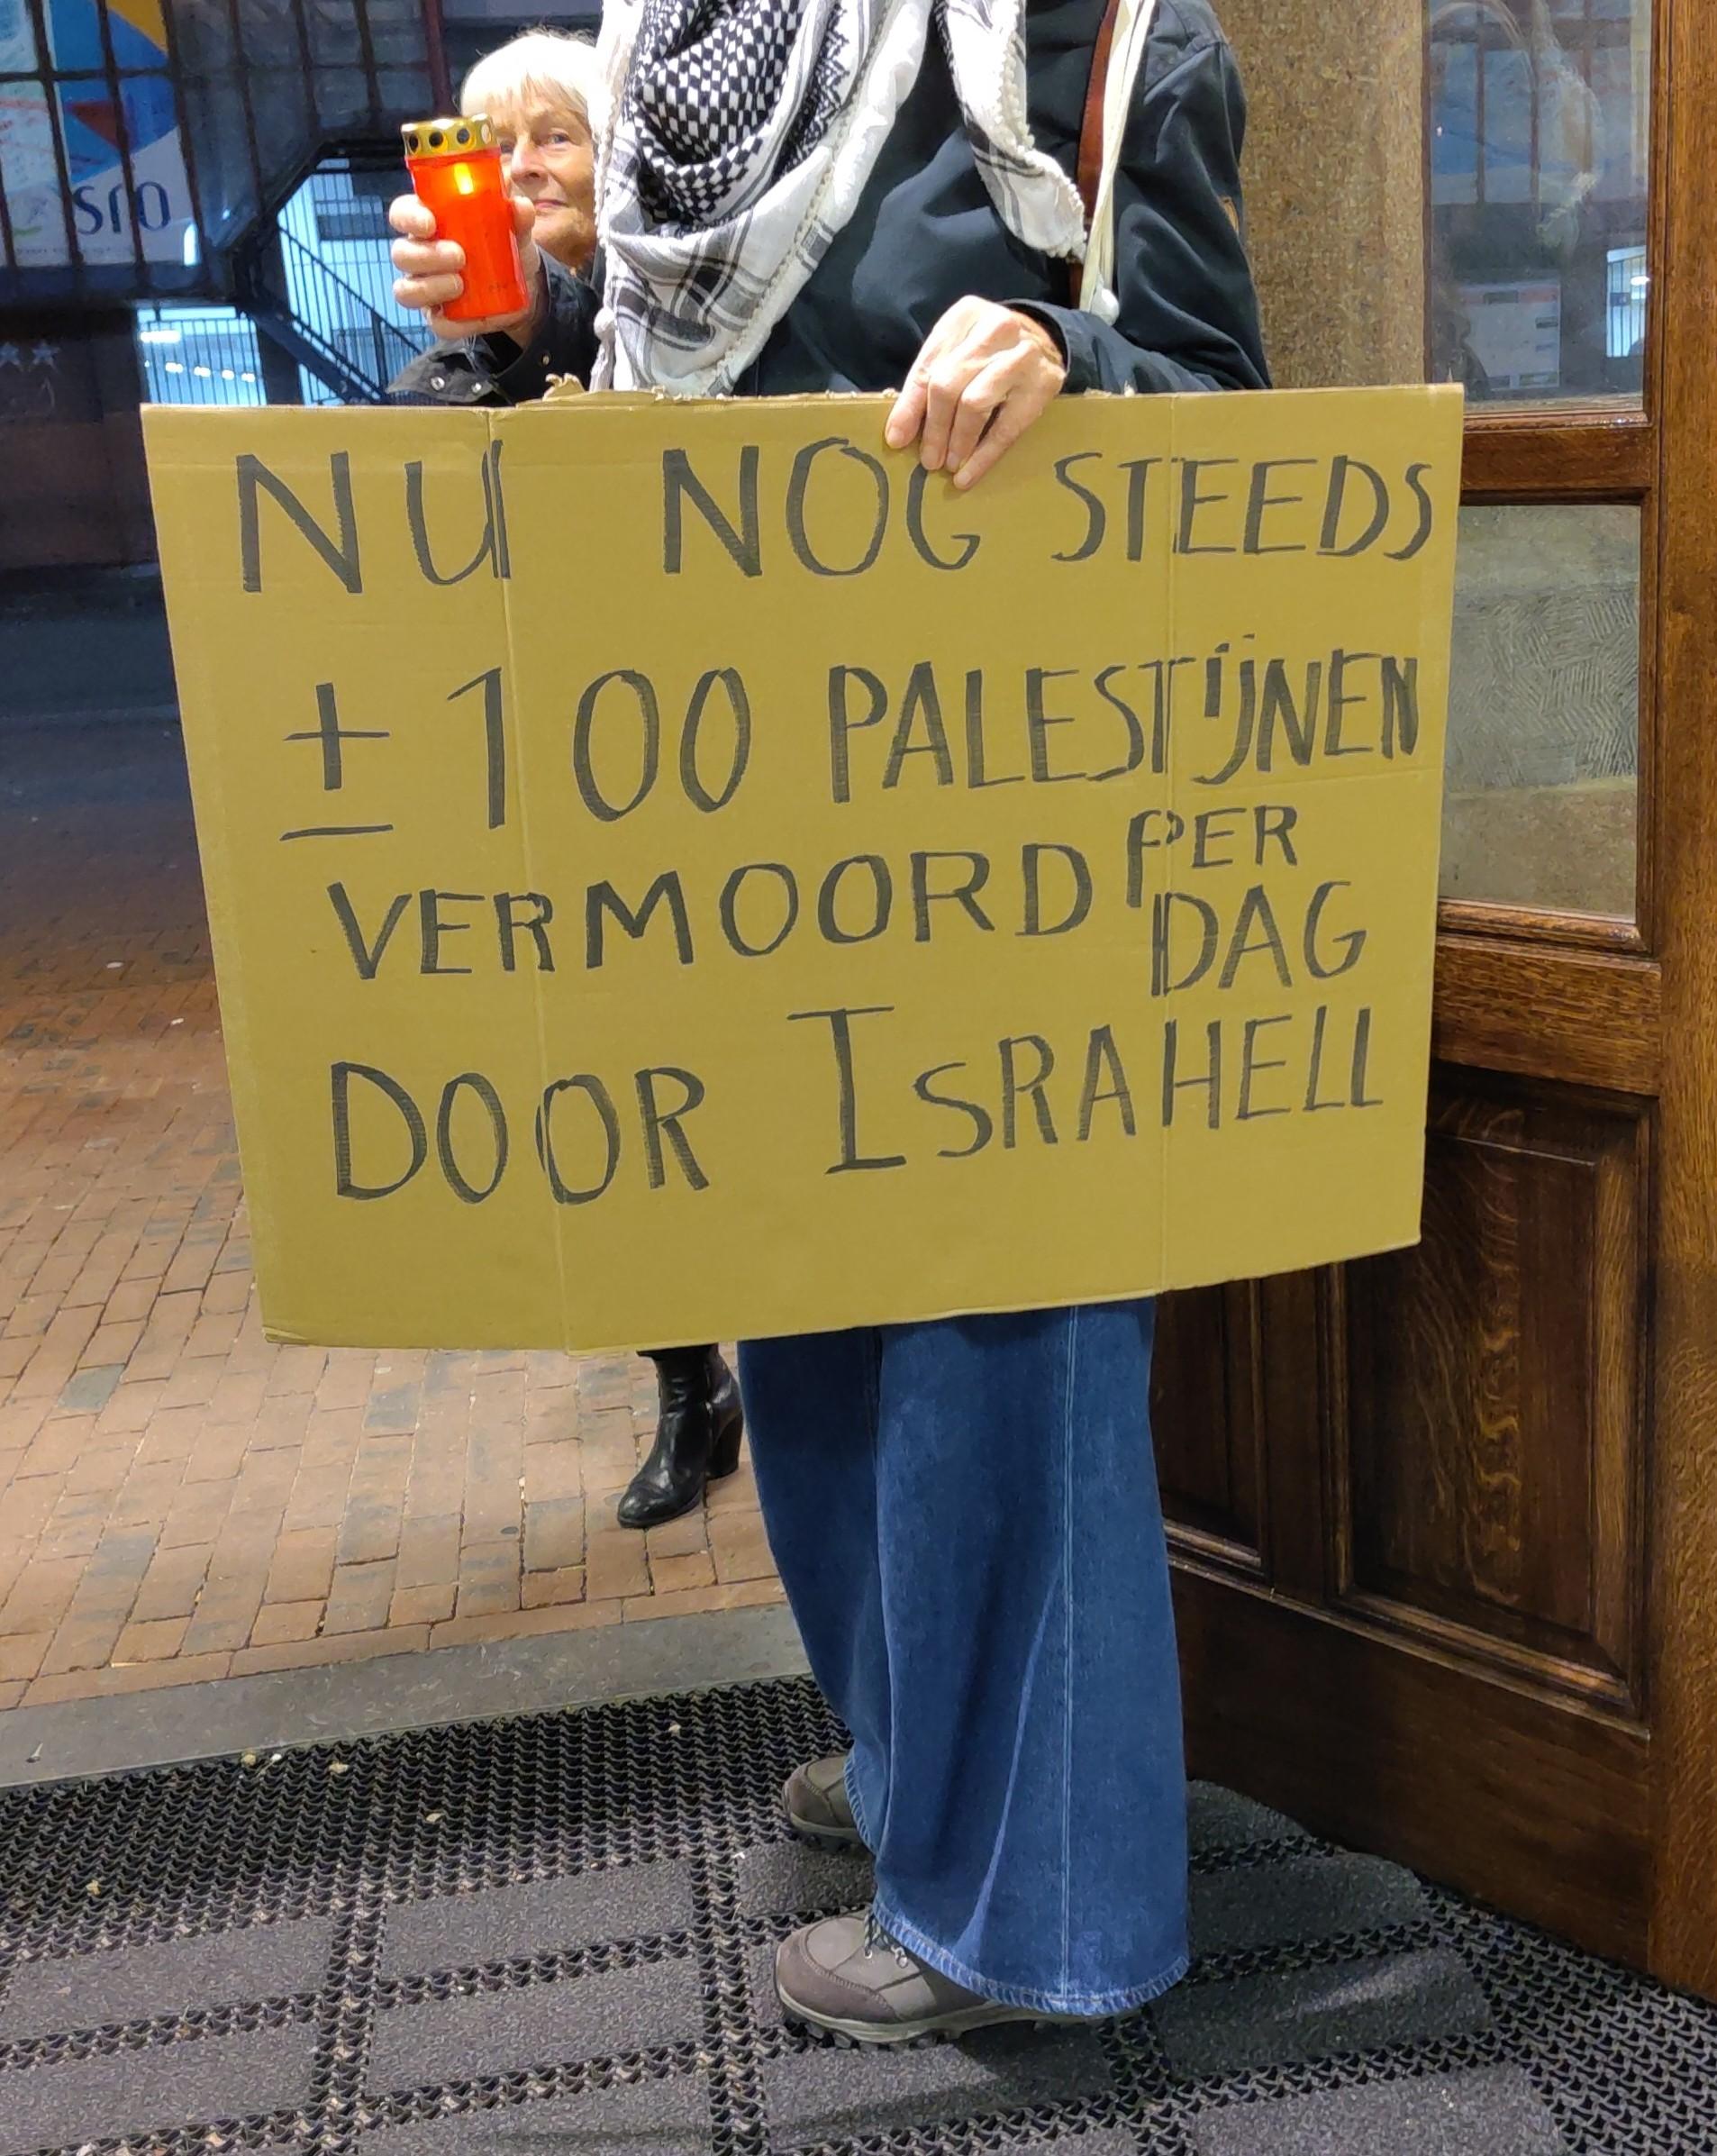 NU NOG STEEDS
± 100 PALESTIJNEN
VERMOORD PER
DAG
DOOR ISRAHELL
sro